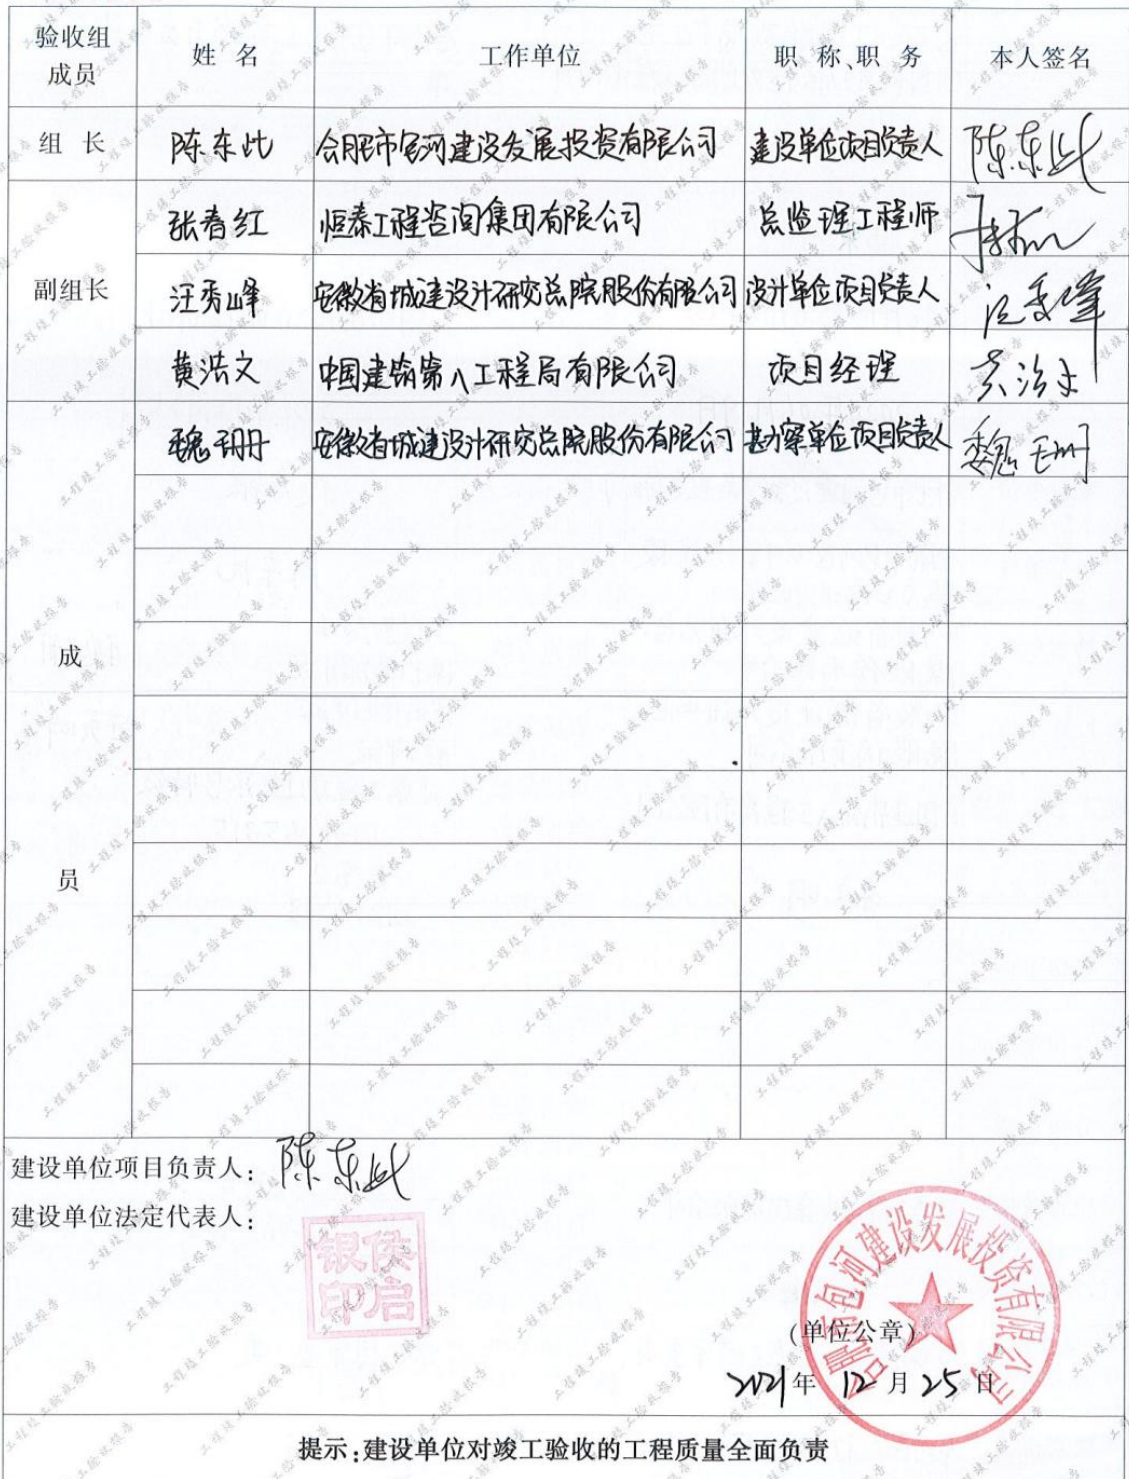 验收组成员 姓 名 工作单位 职 称、职 务 本人签名
组 长 陈东屹 合肥市包河建设发展投资有限公司 建设单位项目负责人 陈东屹
副组长 张春红 恒泰工程咨询集团有限公司 总监理工程师
汪秀峰 安徽省城建设计研究总院股份有限公司 设计单位项目负责人 汪秀峰
黄浩文 中国建筑第八工程局有限公司 项目经理 黄浩文
成员 魏珊珊 安徽省城建设计研究总院股份有限公司 勘察单位项目负责人 魏珊
建设单位项目负责人：陈东屹
建设单位法定代表人：
侯启银印
合肥市包河建设发展投资有限公司
(单位公章)
2021年 12月 25日
提示：建设单位对竣工验收的工程质量全面负责
工程竣工验收报告